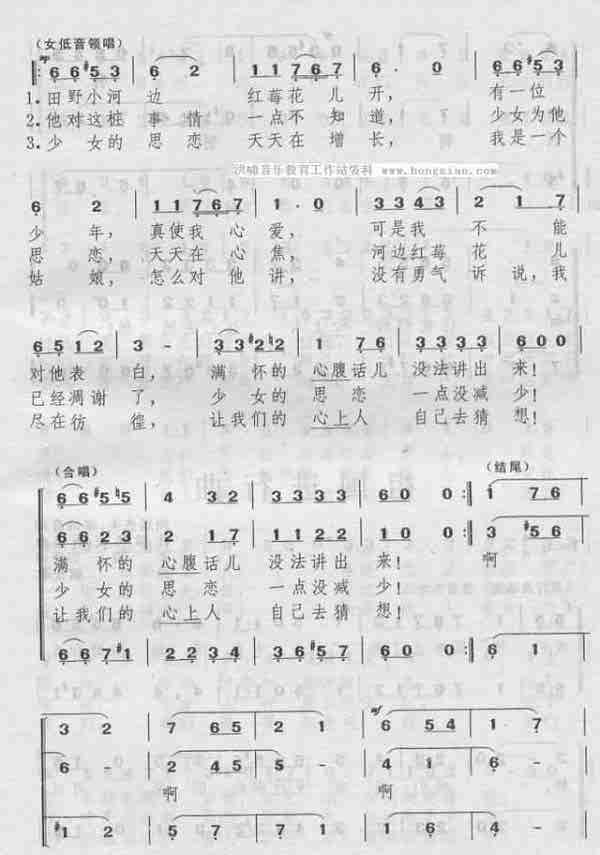 （女低音领唱）
mp
6 6 #5 3 6 2 1 1 7 6 7 6 · 0 6 6 #5 3
1. 田野小河 边 红莓花 儿 开， 有一位
2. 他对这桩 事 情 一点不 知 道， 少女为他
3. 少 女的 思 恋 天天在 增 长， 我是一个
洪啸音乐教育工作站资料 www.hongxiao.com
6 2 1 1 7 6 7 1 · 0 3 3 2 3 2 1 7
少 年， 真使我 心 爱， 可是我 不 能
思 恋， 天天在 心 焦， 河边红莓 花 儿
姑 娘， 怎么对 他 讲， 没有勇气 诉 说，我
6 5 1 2 3 - 3 3 #2 2 1 7 6 3 3 3 3 6 0 0
对他表 白， 满 怀的 心腹话儿 没法讲出 来！
已经凋谢 了， 少 女的 思 恋 一点没减 少！
尽在彷 徨， 让我们的 心上人 自己去猜 想！
（合唱） （结尾）
6 6 #5 ♮5 4 3 2 3 3 3 3 6 0 0 1 7 6
6 6 2 3 2 1 7 1 1 2 2 1 0 0 3 #5 6
满 怀的 心腹话儿 没法讲出 来！ 啊
少 女的 思 恋 一点没减 少！
让我们的 心上人 自己去猜 想！
6 6 7 #1 2 3 4 3 3 3 #5 6 0 0 6 1
mf
3 2 7 6 5 2 1 6 5 4 1 · 7
6 - 2 4 5 5 - 6 - 2 -
啊 啊
#1 2 5 7 7 1 1 6 4 -